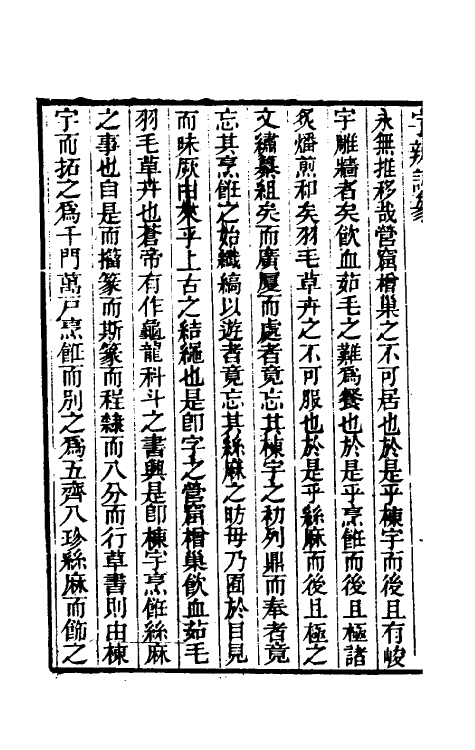 永無推移哉營窟橧巢之不可居也於是乎棟宇而後且有峻
宇雕牆者矣飲血茹毛之難爲餐也於是乎烹飪而後且極諸
炙燔煎和矣羽毛草卉之不可服也於是乎絲麻而後且極之
文繡纂組矣而廣厦而處者竟忘其棟宇之初列鼎而奉者竟
忘其烹飪之始纖縞以遊者竟忘其絲麻之昉毋乃囿於目見
而昧厥由來乎上古之結繩也是卽字之營窟橧巢飲血茹毛
羽毛草卉也蒼帝有作龜龍科斗之書興是卽棟宇烹飪絲麻
之事也自是而籀篆而斯篆而程隸而八分而行草書則由棟
宇而拓之爲千門萬戸烹飪而別之爲五齊八珍絲麻而飾之